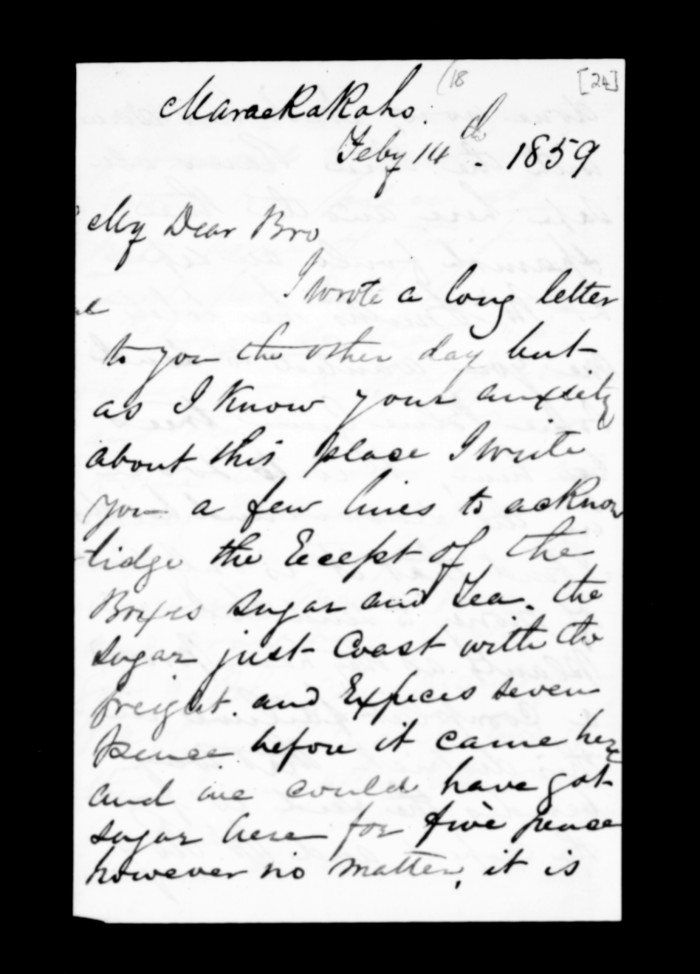 (18 [24]
Maraekakaho.
Feby 14th 1859
My Dear Bro
I wrote a long letter
to you the other day but
as I know your anxsety
about this place I write
you a few lines to acknow
lidge the Eecept of the
Boxes sugar and Tea. the
sugar just Coast with the
freight. and Expeces seven
pence before it came here
and we could have got
sugar here for five pence
however no matter, it is